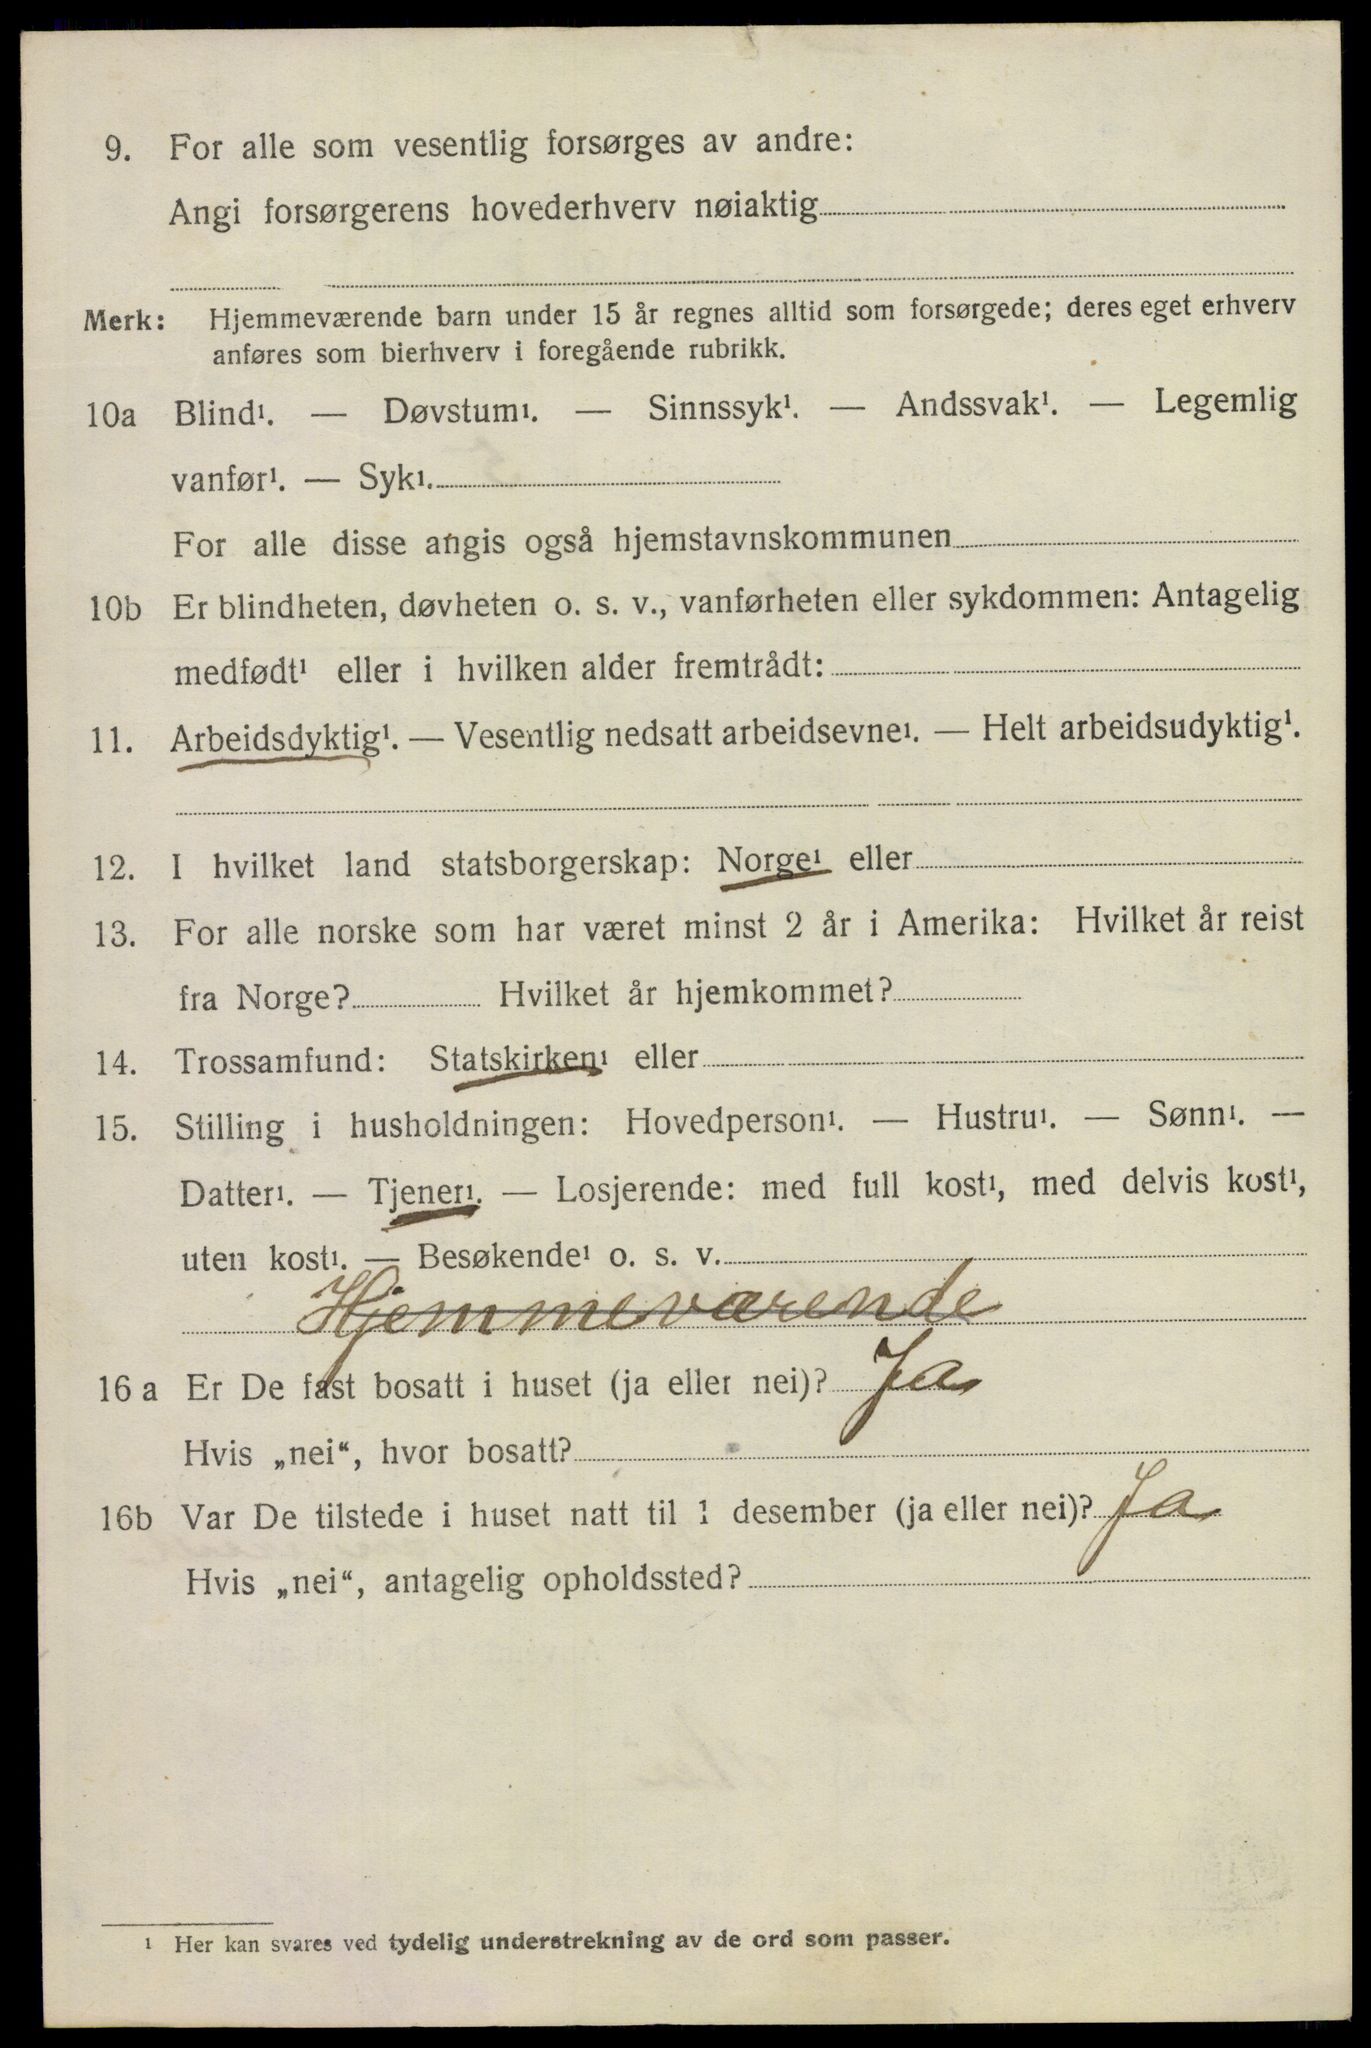 9. For alle som vesentlig forsørges av andre:
Angi forsørgerens hovederhverv nøiaktig
Merk: Hjemmeværende barn under 15 år regnes alltid som forsørgede; deres eget erhverv
anføres som bierhverv i foregående rubrikk.
10a Blind¹. — Døvstum¹. — Sinnssyk¹. — Andssvak¹. — Legemlig
vanfør¹. — Syk¹.
For alle disse angis også hjemstavnskommunen
10b Er blindheten, døvheten o. s. v., vanførheten eller sykdommen: Antagelig
medfødt¹ eller i hvilken alder fremtrådt:
11. Arbeidsdyktig¹. — Vesentlig nedsatt arbeidsevne¹. — Helt arbeidsudyktig¹.
12. I hvilket land statsborgerskap: Norge¹ eller
13. For alle norske som har været minst 2 år i Amerika: Hvilket år reist
fra Norge? Hvilket år hjemkommet?
14. Trossamfund: Statskirken¹ eller
15. Stilling i husholdningen: Hovedperson¹. — Hustru¹. — Sønn¹. —
Datter¹. — Tjener¹. — Losjerende: med full kost¹, med delvis kost¹,
uten kost¹. — Besøkende¹ o. s. v.
Hjemmeværende
16 a Er De fast bosatt i huset (ja eller nei)? Ja
Hvis „nei“, hvor bosatt?
16b Var De tilstede i huset natt til 1 desember (ja eller nei)? Ja
Hvis „nei“, antagelig opholdssted?
¹ Her kan svares ved tydelig understrekning av de ord som passer.